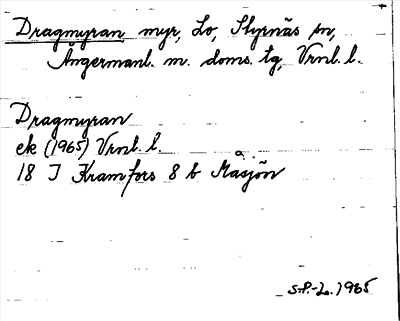 Dragmyran myr, Lo, Styrnäs sn,
Ångermanl. m. doms. tg, Vrnl. l.
Dragmyran
ek (1965) Vrnl. l.
18 I Kramfors 8 b Måsjön
S.P.-L. 1965